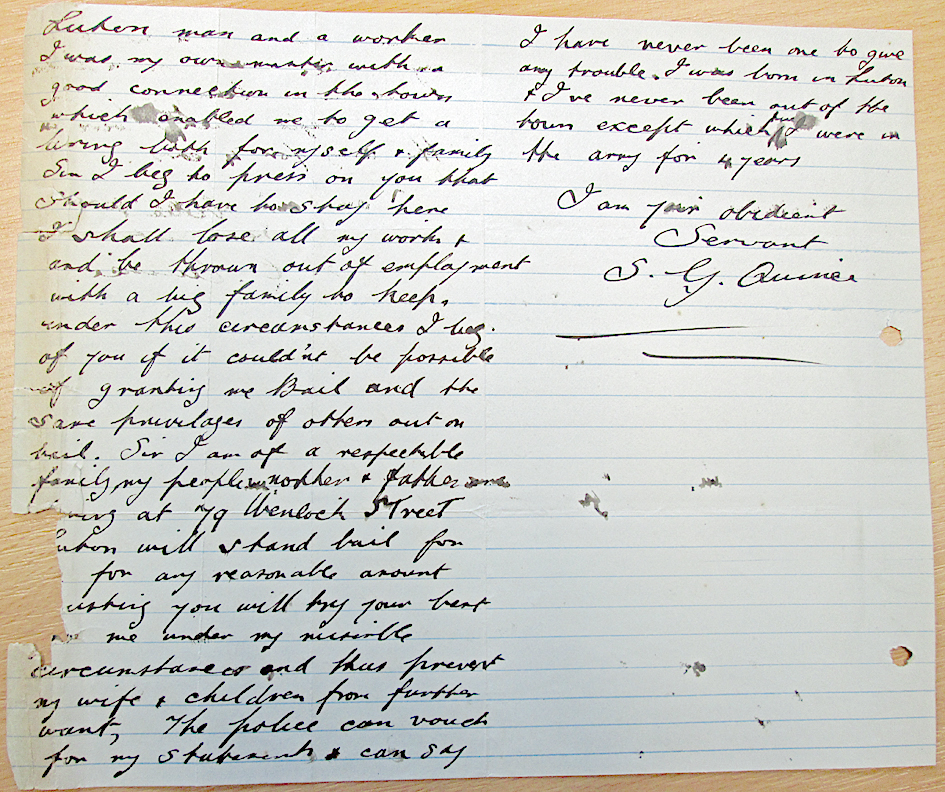 Luton man and a worker
I was my own master with a
good connection in the town
which enabled me to get a
living both for myself & family
Sir I beg to press on you that
Should I have to stay here
I shall lose all my work &
and be thrown out of employment
with a big family to keep.
under this circumstances I beg
of you if it could'nt be possible
of granting me Bail and the
same privilages of others out on
bail. Sir I am of a respectible
family my people mother & father
at 79 Wenlock Street
Luton will stand bail for
for any reasonable amount
you will try your best
me under my misirble
circumstances and thus prevent
my wife & children from further
want, The police can vouch
for my statements & can say
I have never been one to give
any trouble. I was born in Luton
& I've never been out of the
town except which I were in
the army for 4 years
I am your obidient
Servant
S. G. Quince